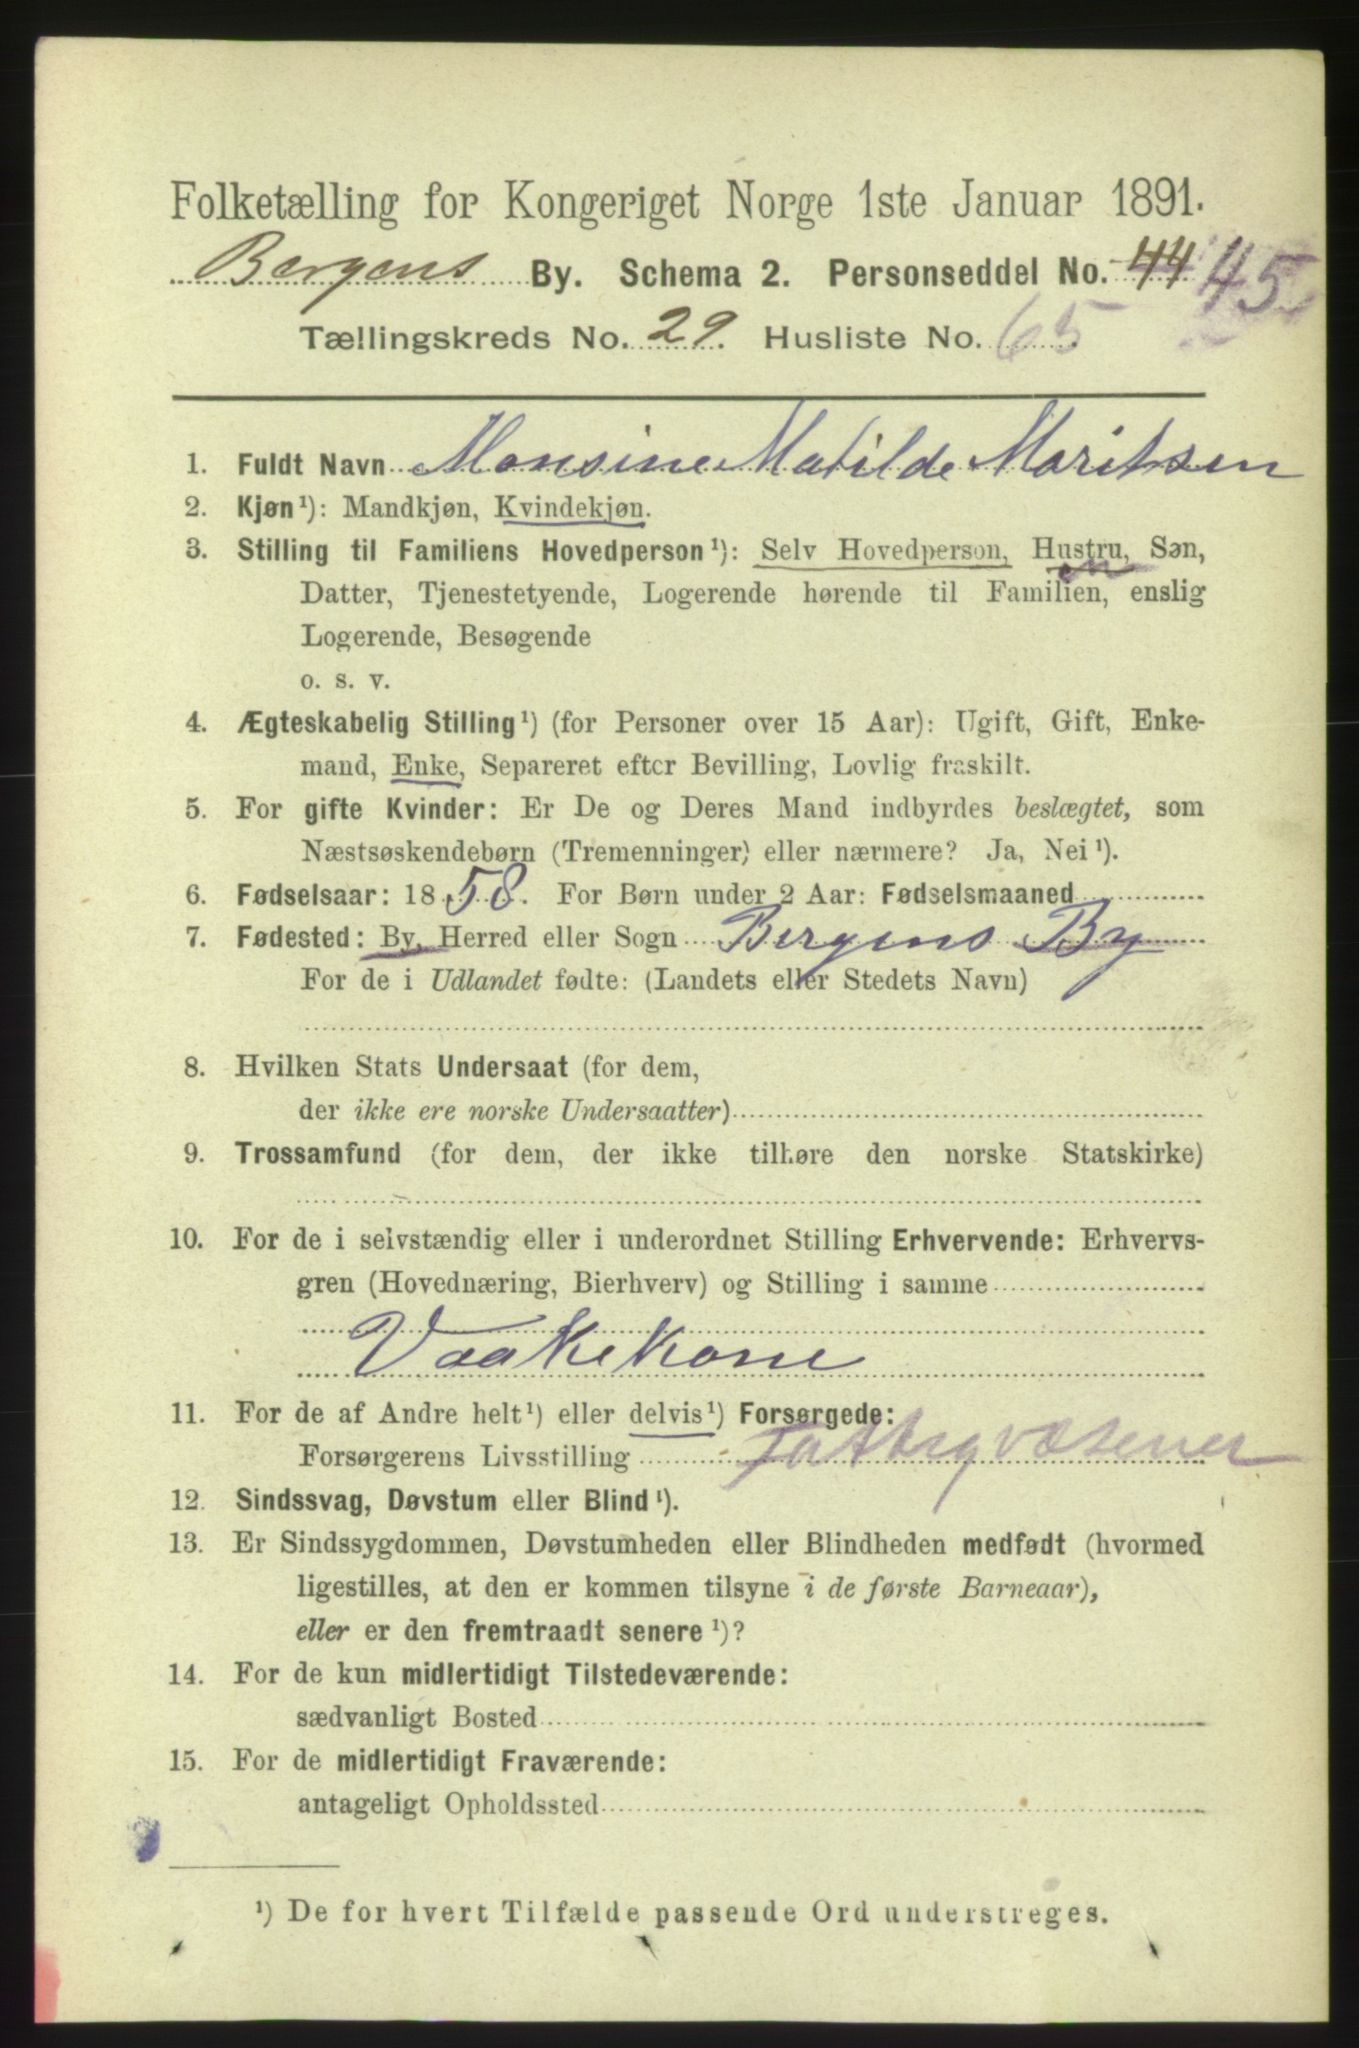 Folketælling for Kongeriget Norge 1ste Januar 1891.
Bergens By. Schema 2. Personseddel No. 44 45
Tællingskreds No. 29. Husliste No. 65
1. Fuldt Navn Monsine Matilde Moritsen
2. Kjøn¹): Mandkjøn, Kvindekjøn.
3. Stilling til Familiens Hovedperson¹): Selv Hovedperson, Hustru, Søn,
Datter, Tjenestetyende, Logerende hørende til Familien, enslig
Logerende, Besøgende
o. s. v.
4. Ægteskabelig Stilling¹) (for Personer over 15 Aar): Ugift, Gift, Enke-
mand, Enke, Separeret efter Bevilling, Lovlig fraskilt.
5. For gifte Kvinder: Er De og Deres Mand indbyrdes beslægtet, som
Næstsøskendebørn (Tremenninger) eller nærmere? Ja, Nei¹).
6. Fødselsaar: 1858. For Børn under 2 Aar: Fødselsmaaned
7. Fødested: By, Herred eller Sogn Bergens By
For de i Udlandet fødte: (Landets eller Stedets Navn)
8. Hvilken Stats Undersaat (for dem,
der ikke ere norske Undersaatter)
9. Trossamfund (for dem, der ikke tilhøre den norske Statskirke)
10. For de i selvstændig eller i underordnet Stilling Erhvervende: Erhvervs-
gren (Hovednæring, Bierhverv) og Stilling i samme
Vaakekone
11. For de af Andre helt¹) eller delvis¹) Forsørgede:
Forsørgerens Livsstilling
12. Sindssvag, Døvstum eller Blind¹).
13. Er Sindssygdommen, Døvstumheden eller Blindheden medfødt (hvormed
ligestilles, at den er kommen tilsyne i de første Barneaar),
eller er den fremtraadt senere¹)?
14. For de kun midlertidigt Tilstedeværende:
sædvanligt Bosted
15. For de midlertidigt Fraværende:
antageligt Opholdssted
¹) De for hvert Tilfælde passende Ord understreges.